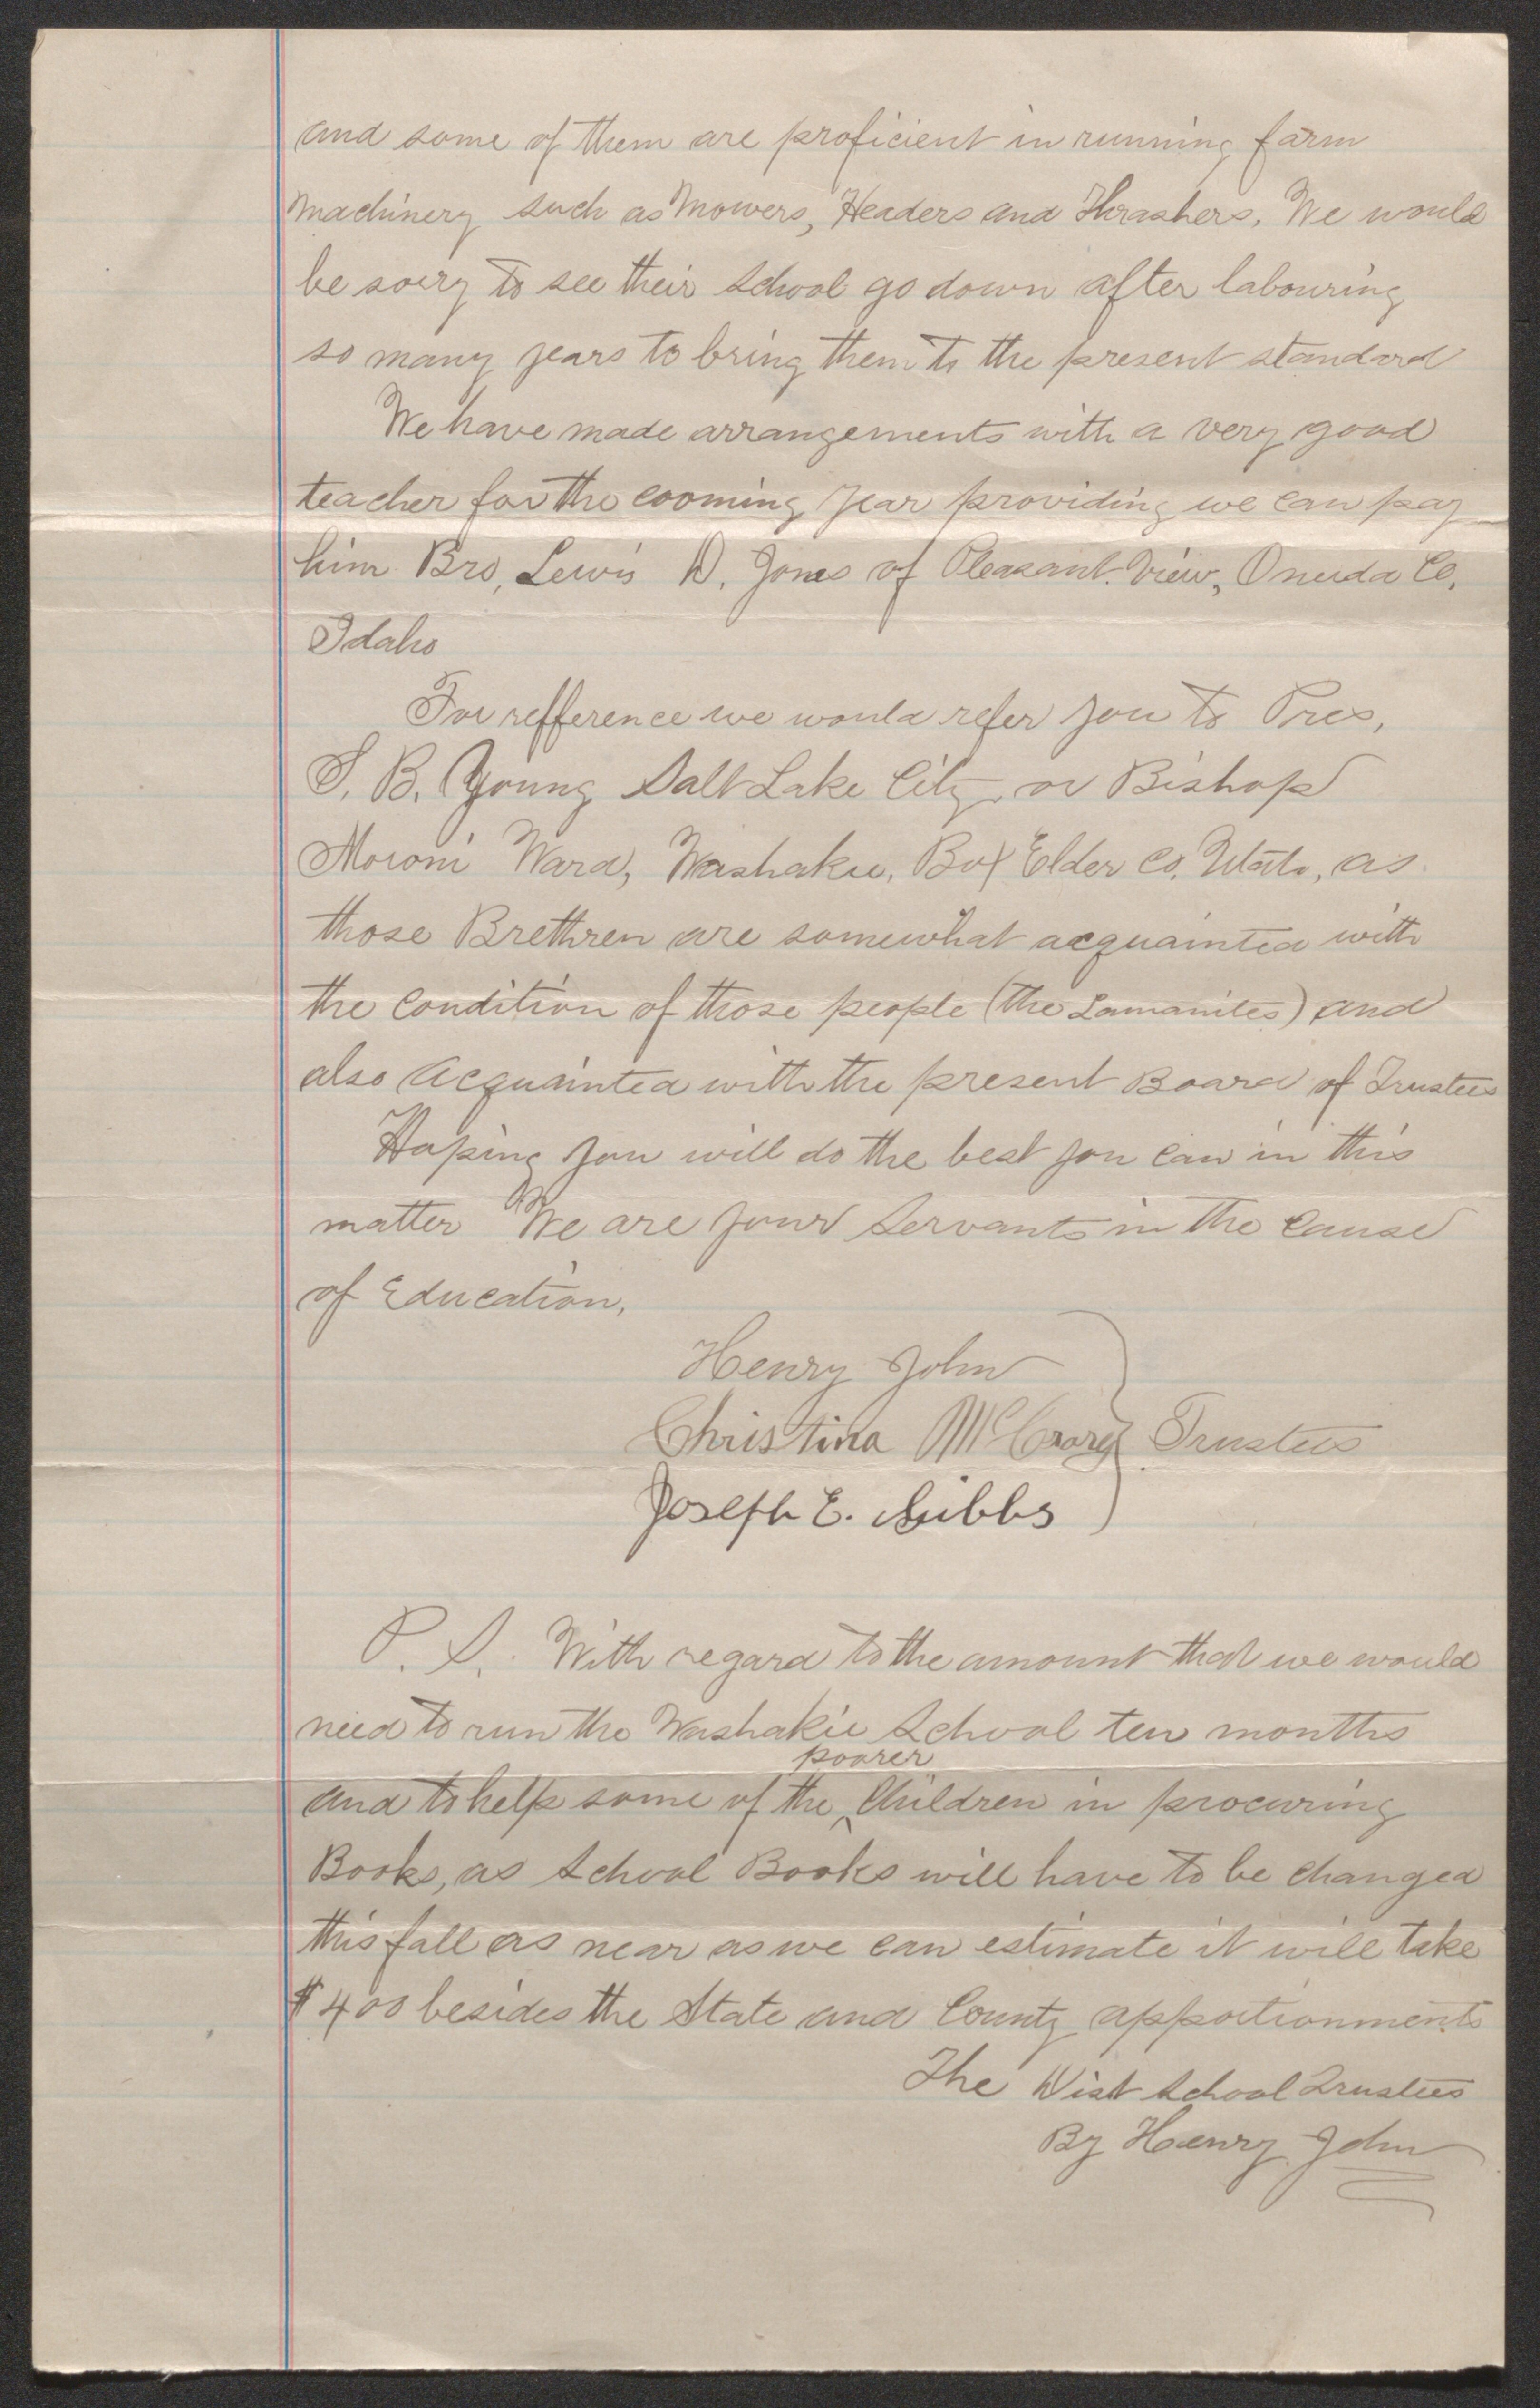 and some of them are proficient in running farm
machinery such as Mowers, Headers and Thrashers. We would
be sorry to see their School go down after labouring
so many years to bring them to the present standard
We have made arrangements with a very good
teacher for the cooming year providing we can pay
him Bro, Lewis D. Jones of Pleasant View, Oneida Co,
Idaho
For refference we would refer you to Pres,
S. B. Young Salt Lake City, or Bishop
Moroni Ward, Washakie, Box Elder Co. Utah, as
those Brethren are somewhat acquainted with
the condition of those people (the Lamanites) and
also acquainted with the present Board of Trustees
Hoping you will do the best you can in this
matter We are your Servants in the cause
of Education,
Henry John
Christina McCrary Trustees
Joseph E. Gibbs
P. S. With regard to the amount that we would
need to run the Washakie School ten months
poorer
and to help some of the ^ Children in procuring
Books, as School Books will have to be changed
this fall as near as we can estimate it will take
$400 besides the State and County apportionments
The Dist School Trustees
By Henry John